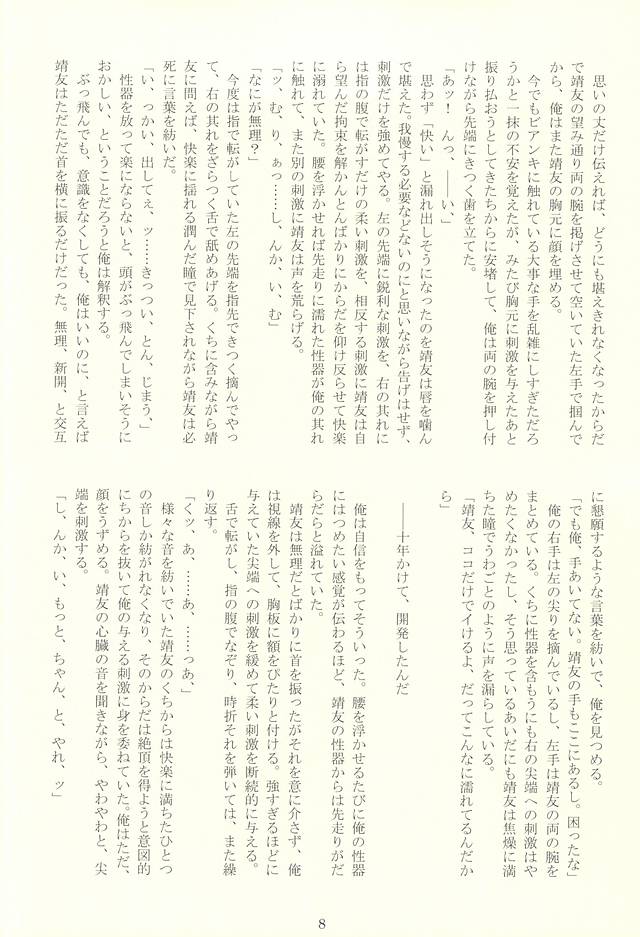 思いの丈だけ伝えれば、どうにも堪えきれなくなったからだ
で靖友の望み通り両の腕を掲げさせて空いていた左手で掴んで
から、俺はまた靖友の胸元に顔を埋める。
今でもビアンキに触れている大事な手を乱雑にしすぎただろ
うかと一抹の不安を覚えたが、みたび胸元に刺激を与えたあと
振り払おうとしてきたちからに安堵して、俺は両の腕を押し付
けながら先端にきつく歯を立てた。
「あッ！　んっ、――い、」
思わず「快い」と漏れ出しそうになったのを靖友は唇を噛ん
で堪えた。我慢する必要などないのにと思いながら告げはせず、
刺激だけを強めてやる。左の先端に鋭利な刺激を、右の其れに
は指の腹で転がすだけの柔い刺激を、相反する刺激に靖友は自
ら望んだ拘束を解かんとんばかりにからだを仰け反らせて快楽
に溺れていた。腰を浮かせれば先走りに濡れた性器が俺の其れ
に触れて、また別の刺激に靖友は声を荒らげる。
「ッ、む、り、ぁっ……し、んか、い、む」
「なにが無理？」
今度は指で転がしていた左の先端を指先できつく摘んでやっ
て、右の其れをざらつく舌で舐めあげる。くちに含みながら靖
友に問えば、快楽に揺れる潤んだ瞳で見下されながら靖友は必
死に言葉を紡いだ。
「い、っかい、出してぇ、ッ……きっつい、とん、じまう、」
性器を放って楽にならないと、頭がぶっ飛んでしまいそうに
おかしい、ということだろうと俺は解釈する。
ぶっ飛んでも、意識をなくしても、俺はいいのに、と言えば
靖友はただただ首を横に振るだけだった。無理、新開、と交互
に懇願するような言葉を紡いで、俺を見つめる。
「でも俺、手あいてない。靖友の手もここにあるし。困ったな」
俺の右手は左の尖りを摘んでいるし、左手は靖友の両の腕を
まとめている。くちに性器を含もうにも右の尖端への刺激はや
めたくなかったし、そう思っているあいだにも靖友は焦燥に満
ちた瞳でうわごとのように声を漏らしている。
「靖友、ココだけでイけるよ、だってこんなに濡れてるんだか
ら」
――十年かけて、開発したんだ
俺は自信をもってそういった。腰を浮かせるたびに俺の性器
にはつめたい感覚が伝わるほど、靖友の性器からは先走りがだ
らだらと溢れていた。
靖友は無理だとばかりに首を振ったがそれを意に介さず、俺
は視線を外して、胸板に額をぴたりと付ける。強すぎるほどに
与えていた尖端への刺激を緩めて柔い刺激を断続的に与える。
舌で転がし、指の腹でなぞり、時折それを弾いては、また繰
り返す。
「くッ、あ、……あ、……っあ、」
様々な音を紡いでいた靖友のくちからは快楽に満ちたひとつ
の音しか紡がれなくなり、そのからだは絶頂を得ようと意図的
にちからを抜いて俺の与える刺激に身を委ねていた。俺はただ、
顔をうずめる。靖友の心臓の音を聞きながら、やわやわと、尖
端を刺激する。
「し、んか、い、もっと、ちゃん、と、やれ、ッ」
8